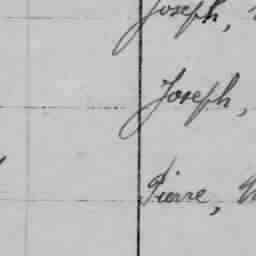 Joseph,
Joseph,
Pierre,